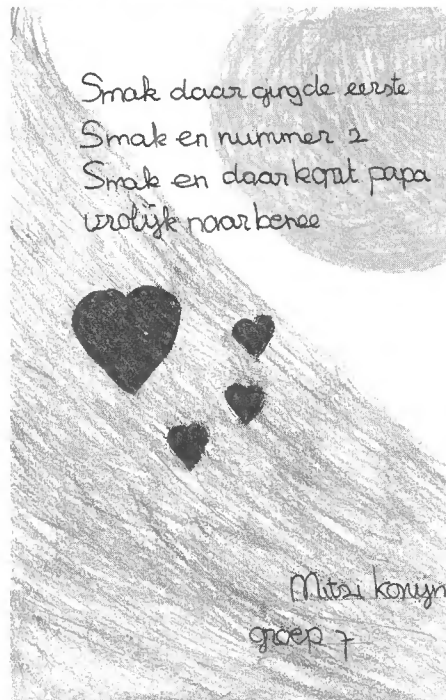 Smak daar ging de eerste
Smak en nummer 2
Smak en daar komt papa
vrolijk naar benee
Mitzi konijn
groep 7